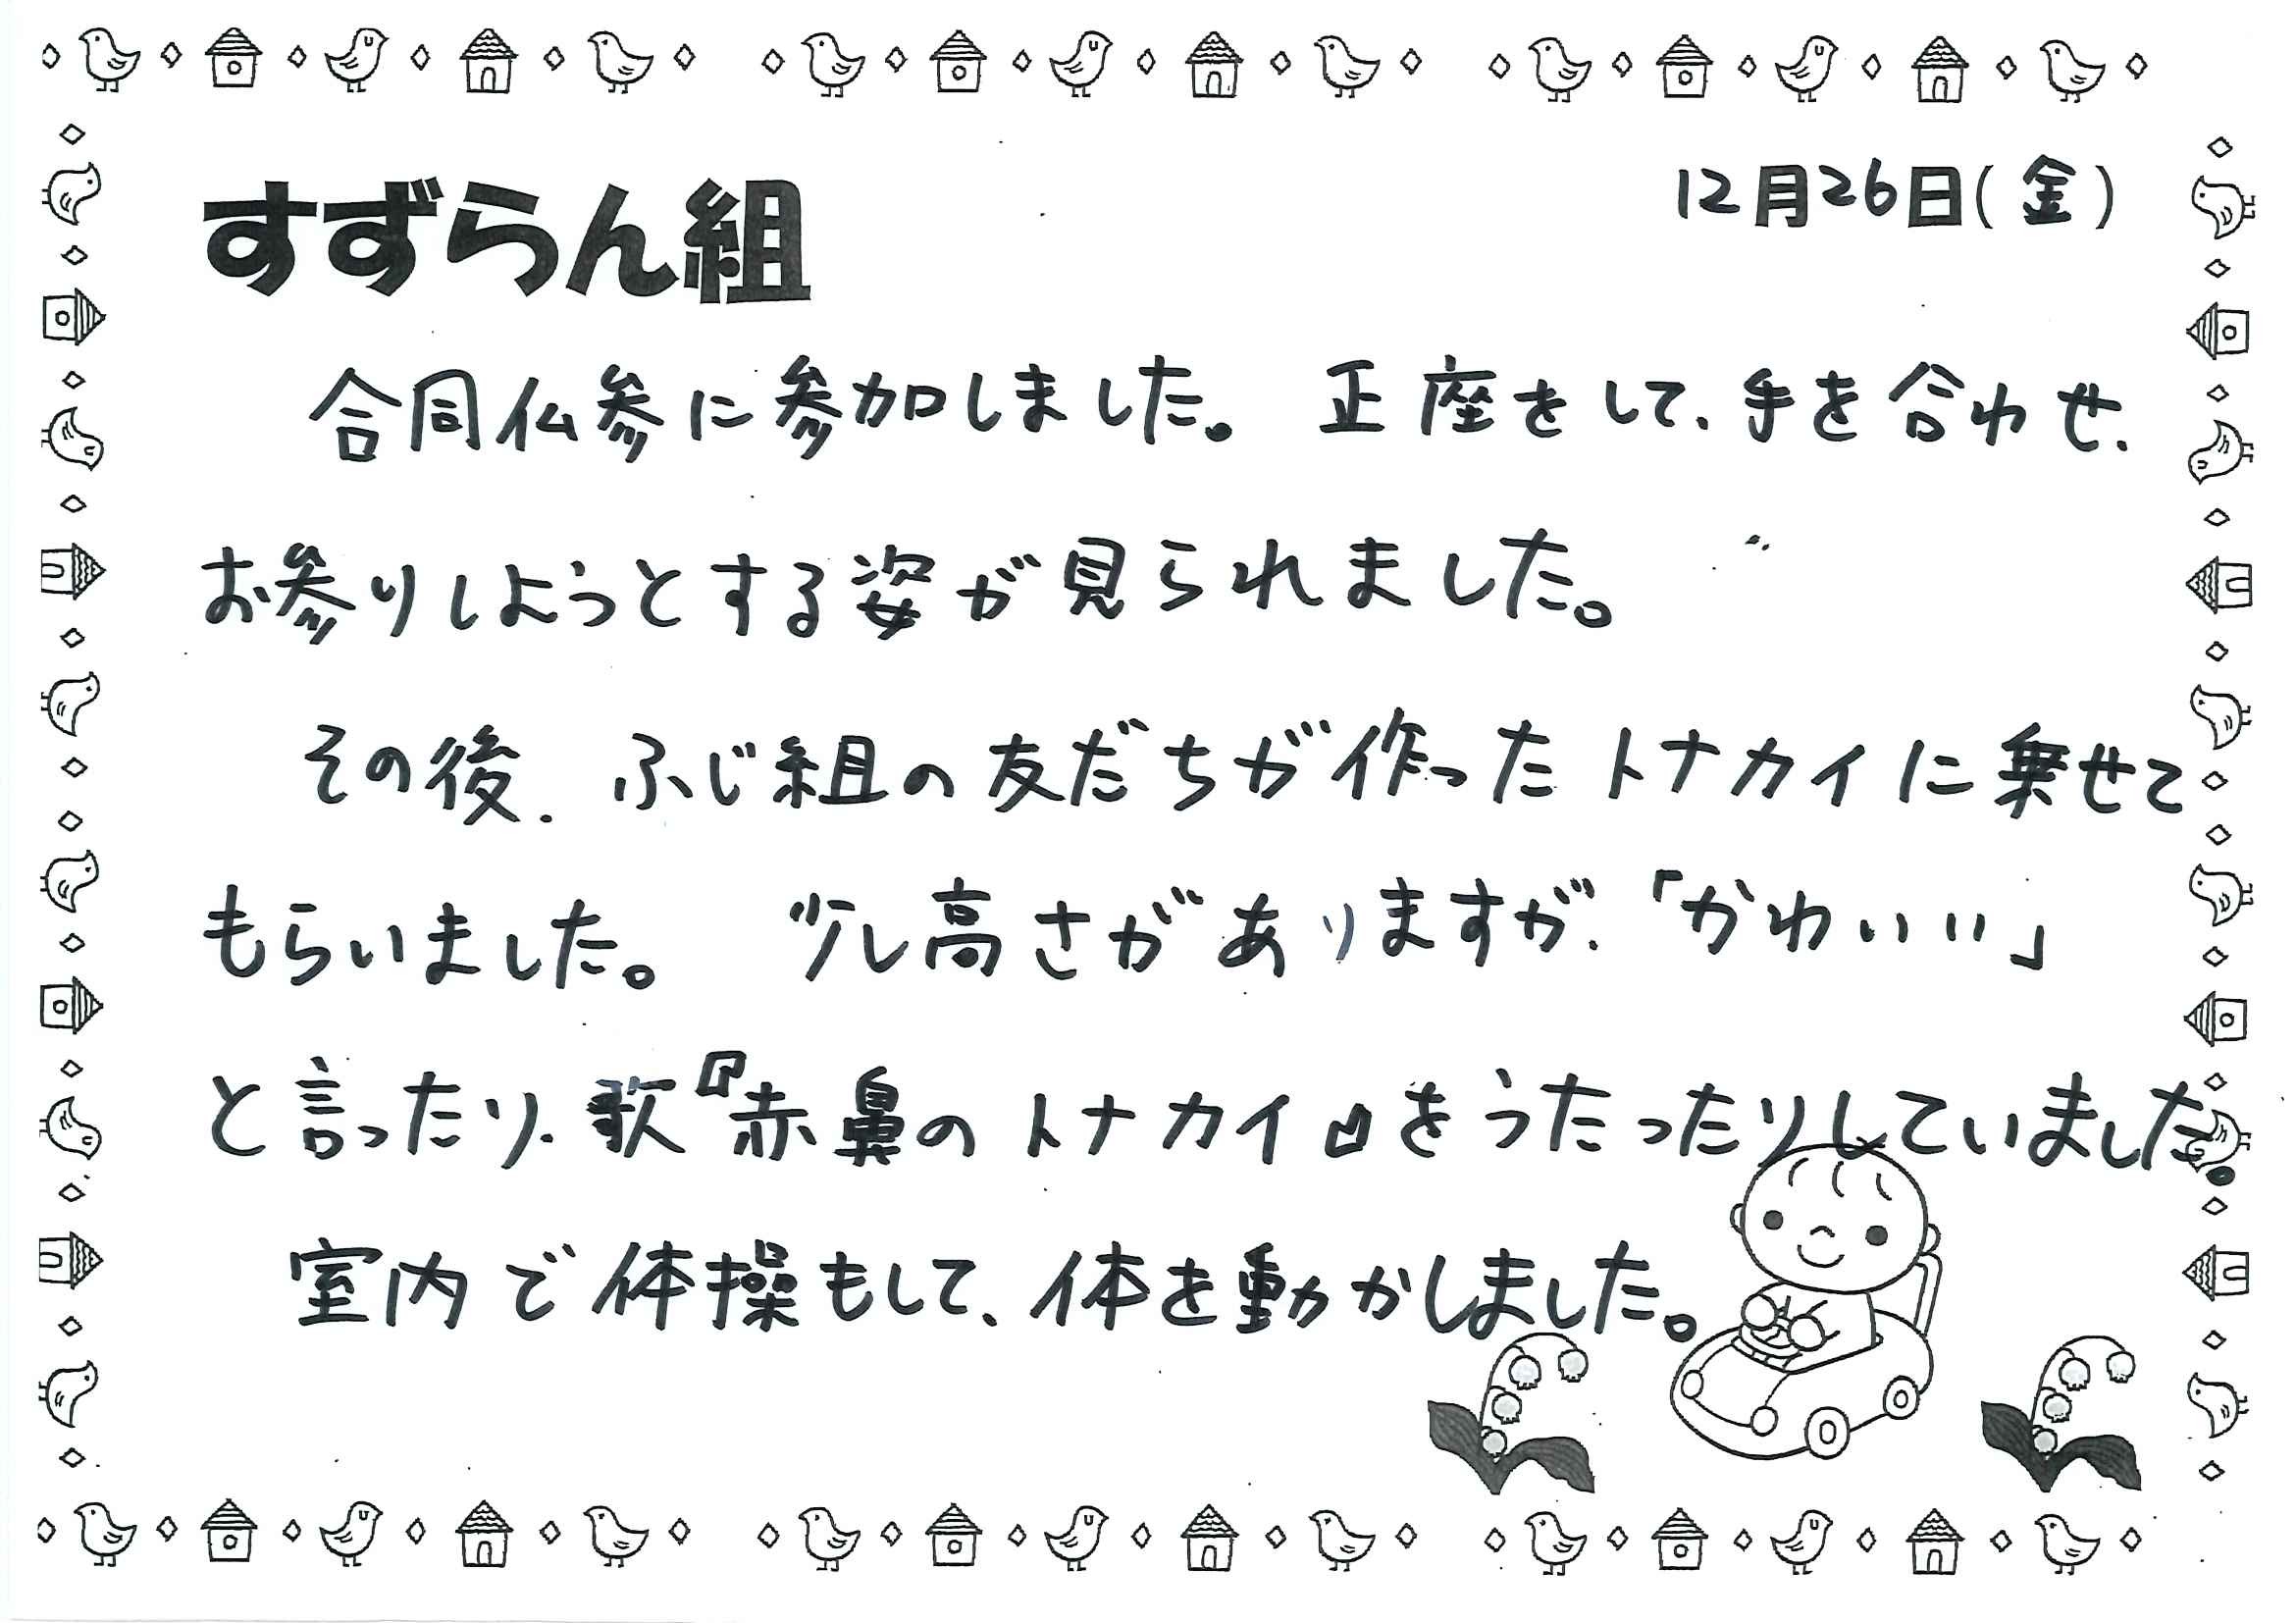 すずらん組
12月26日(金)
合同仏参に参加しました。正座をして、手を合わせ、
お参りしようとする姿が見られました。
その後、ふじ組の友だちが作ったトナカイに乗せて
もらいました。少し高さがありますが、「かわいい」
と言ったり、歌『赤鼻のトナカイ』をうたったりしていました。
室内で体操もして、体を動かしました。